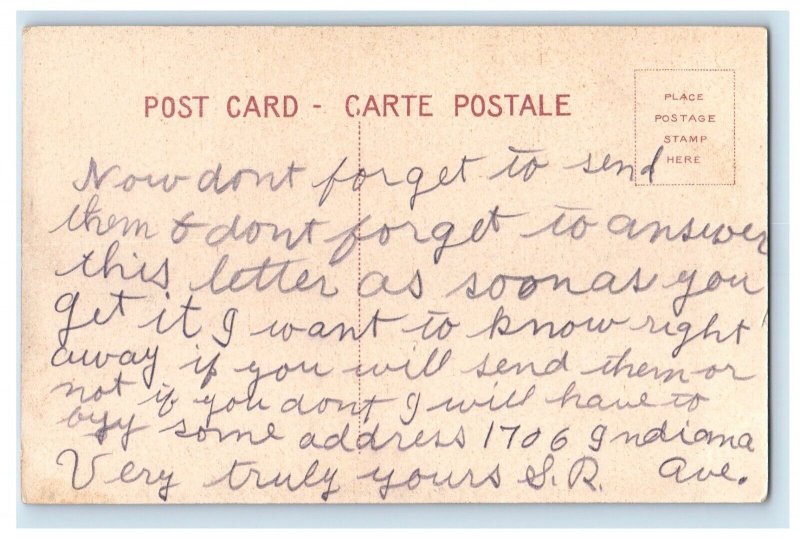 POST CARD - CARTE POSTALE
PLACE
POSTAGE
STAMP
HERE
Now dont forget to send
them & dont forget to answer
this letter as soon as you
get it I want to know right
away if you will send them or
not if you dont I will have to
buy some address 1706 Indiana
Very truly yours S.R. Ave.